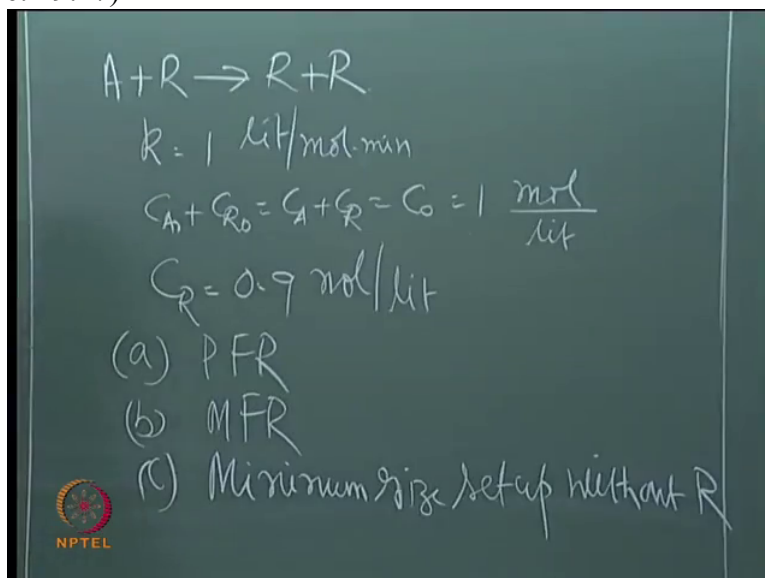 A+R → R+R
k = 1 lit/mol.min
C_A0 + C_R0 = C_A + C_R = C_0 = 1 mol/lit
C_R = 0.9 mol/lit
(a) PFR
(b) MFR
(c) Minimum size setup without R
NPTEL